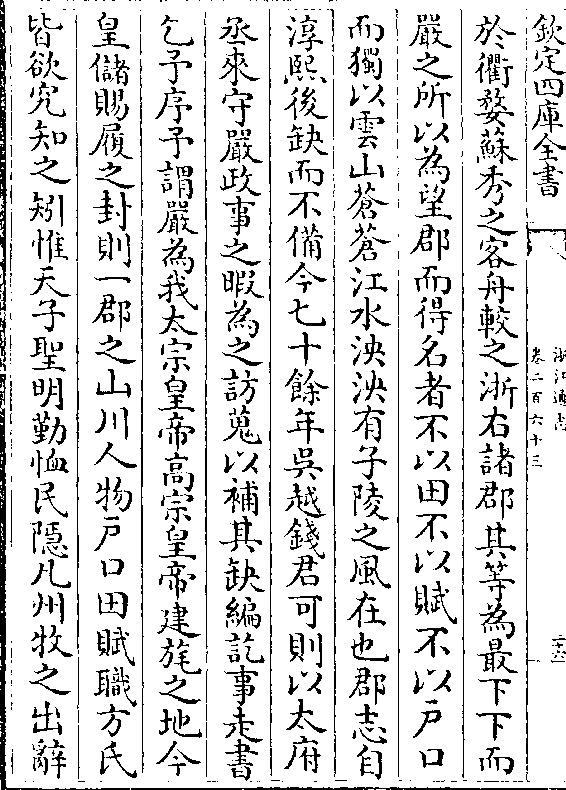 欽定四庫全書
浙江通志
卷二百六十三
於衢婺蘇秀之客舟較之浙右諸郡其等為最下下而
嚴之所以為望郡而得名者不以田不以賦不以戶口
而獨以雲山蒼蒼江水泱泱有子陵之風在也郡志自
淳熙後缺而不備今七十餘年吳越錢君可則以太府
丞來守嚴政事之暇為之訪蒐以補其缺編訖事走書
乞予序予謂嚴為我太宗皇帝高宗皇帝建旄之地今
皇儲賜履之封則一郡之山川人物戶口田賦職方氏
皆欲究知之矧惟天子聖明勤恤民隱凡州牧之出辭